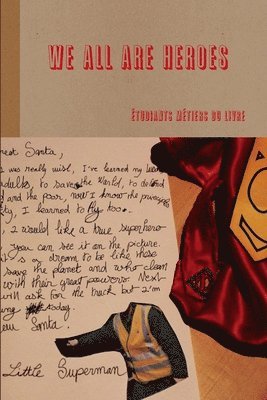 WE ALL ARE HEROES
ÉTUDIANTS MÉTIERS DU LIVRE
Santa,
was really wise, I've learned my
to save the World, to
and the poor, now I know the
I learned to fly too.
I would like a true superhero
you can see it on the picture.
is a dream to be like those
save the planet and who clean
with their great powers. Next
will ask for the truck but I'm
today.
Santa.
Little Superman